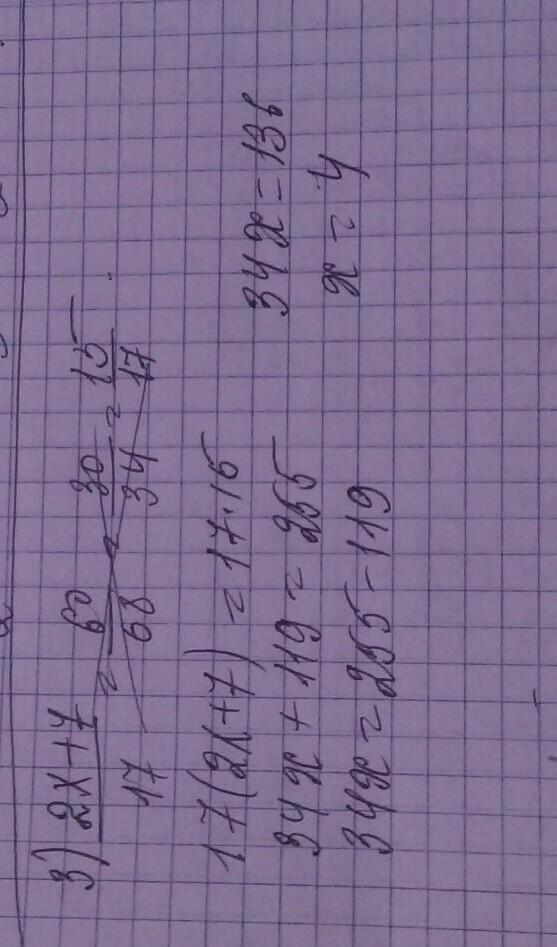 3) (2x+7)/17 = 60/68 = 30/34 = 15/17
17(2x+7) = 17·15
34x + 119 = 255
34x = 255 - 119
34x = 136
x = 4